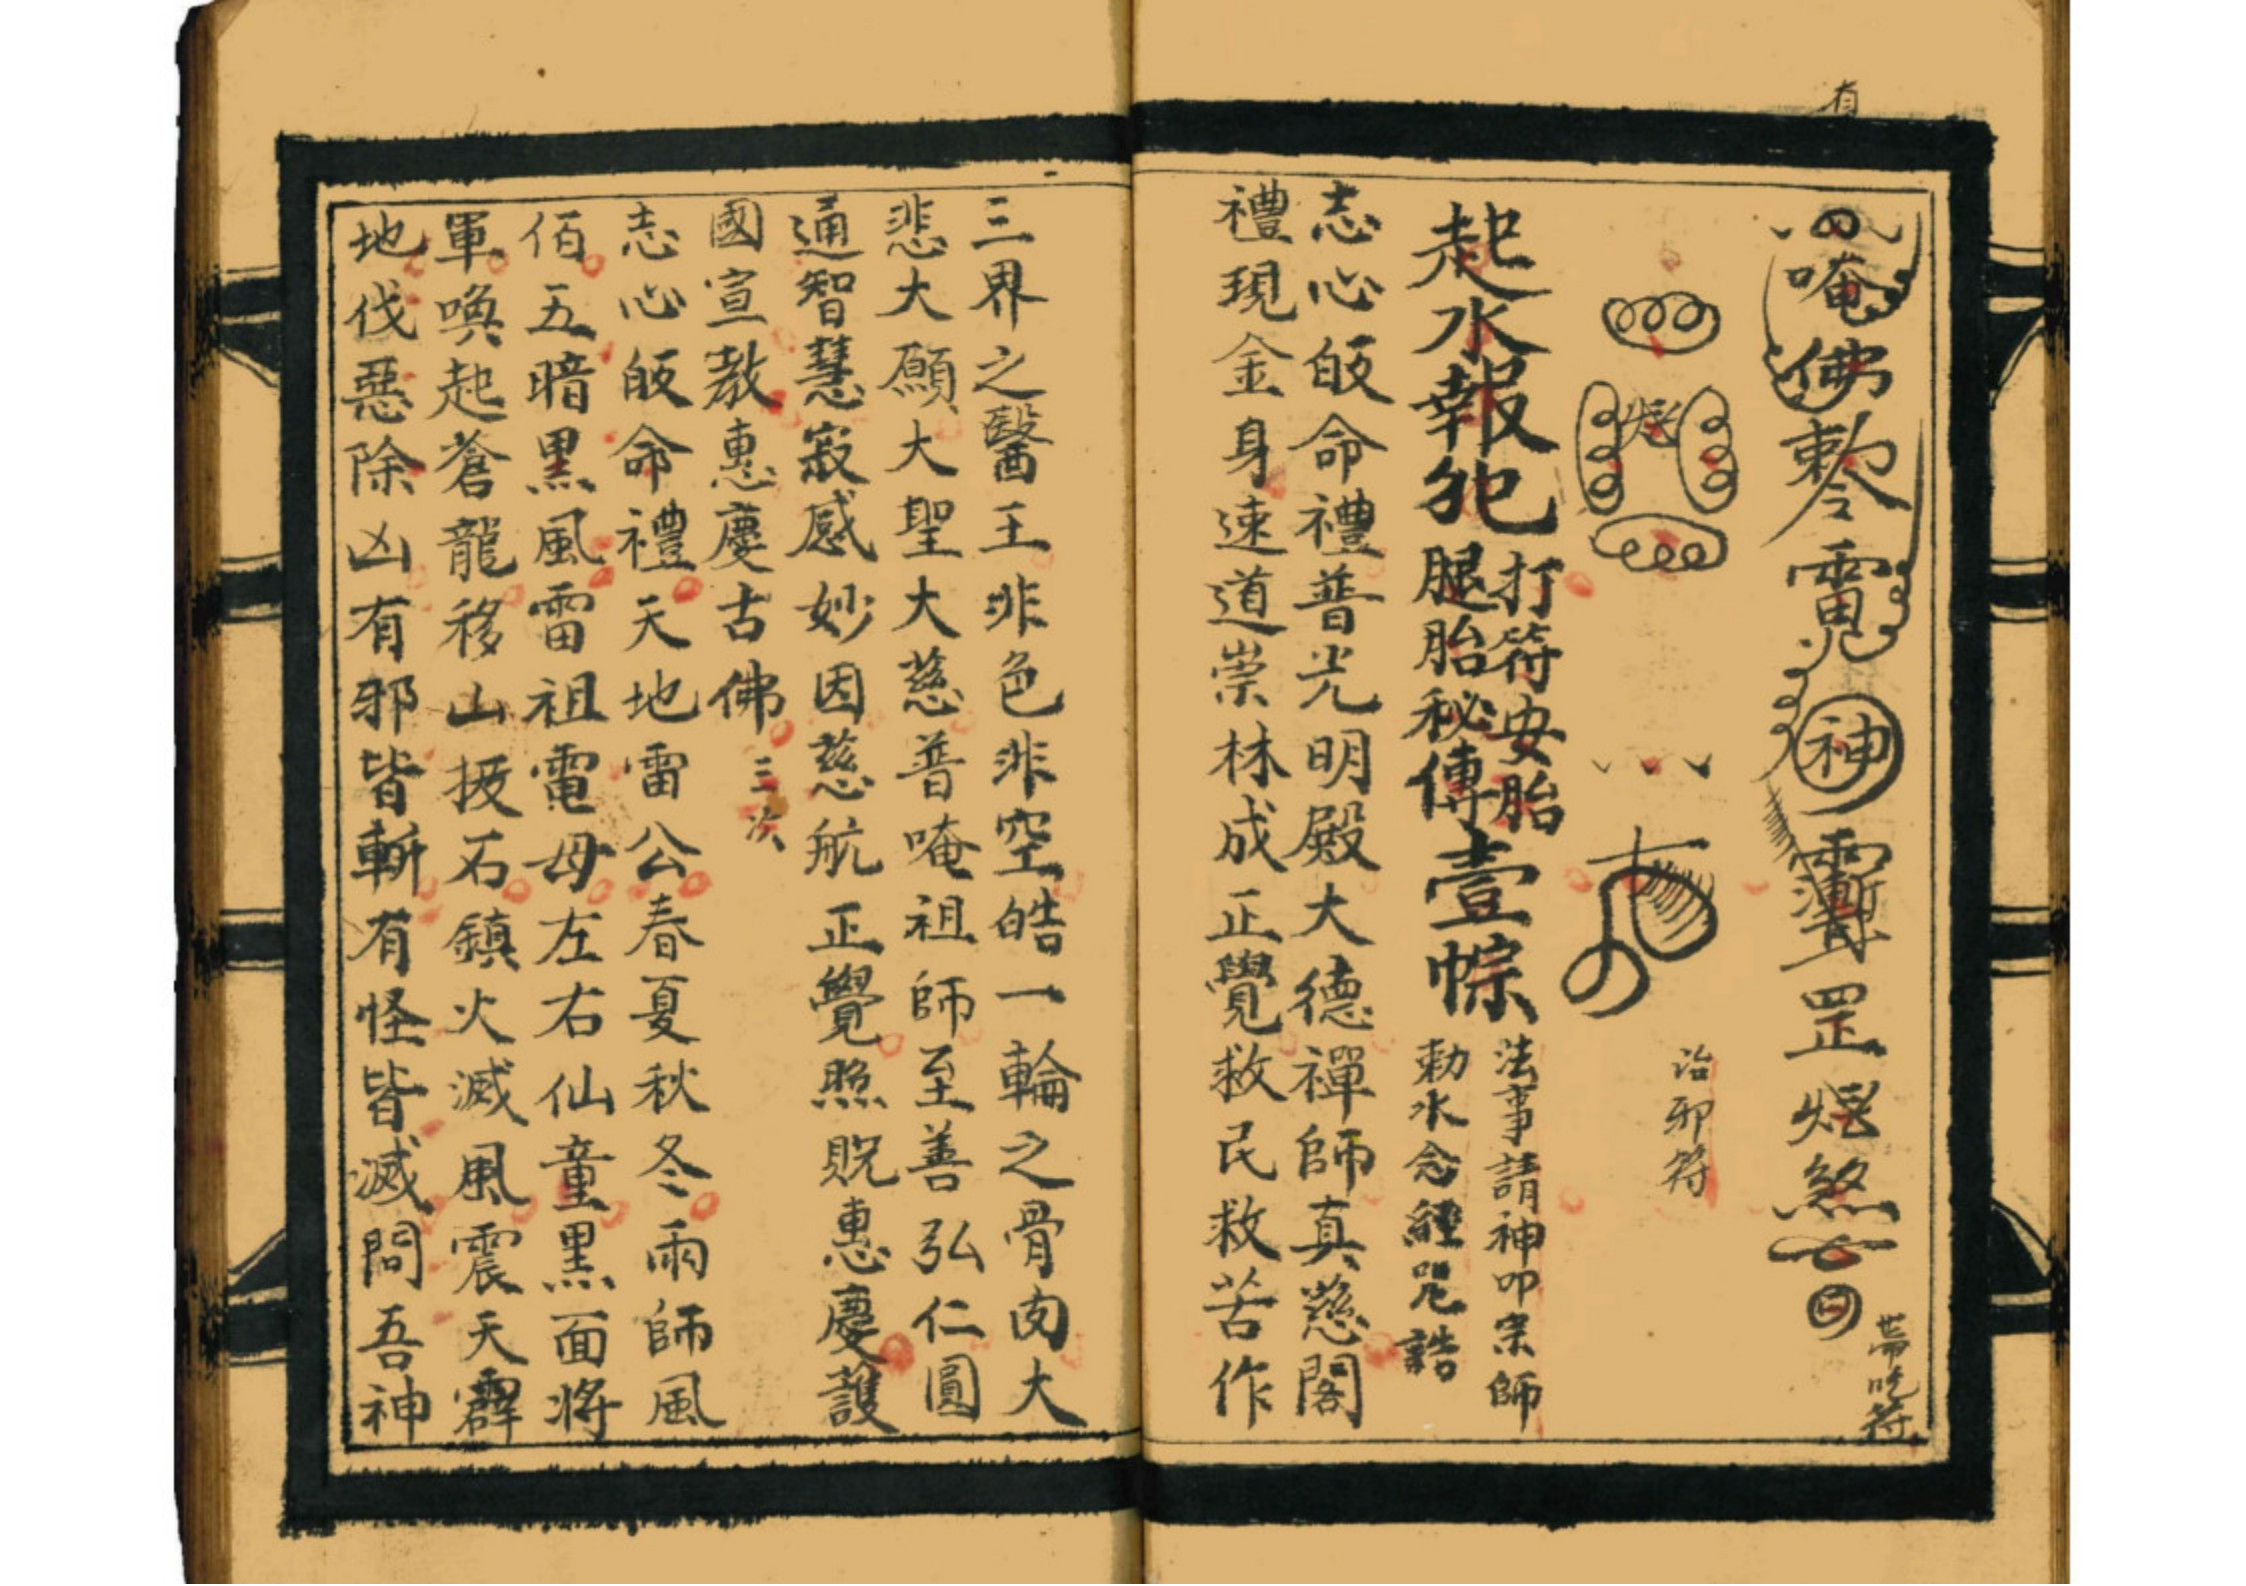 有
唵佛敕令神罡煞
帶吃符
治邪符
起水報犯
打符安胎
腿胎秘傳
壹悰
法事請神叩宗師
勅水念經咒誥
志心皈命禮普光明殿大德禪師真慈閣
禮現金身速道崇林成正覺救民救苦作
三界之醫王非色非空皓一輪之骨肉大
悲大願大聖大慈普唵祖師至善弘仁圓
通智慧寂感妙因慈航正覺照貺惠慶護
國宣教惠慶古佛三次
志心皈命禮天地雷公春夏秋冬雨師風
佰五暗黑風雷祖電母左右仙童黑面將
軍喚起蒼龍移山拔石鎮火滅風震天霹
地伐惡除凶有邪皆斬有怪皆滅問吾神